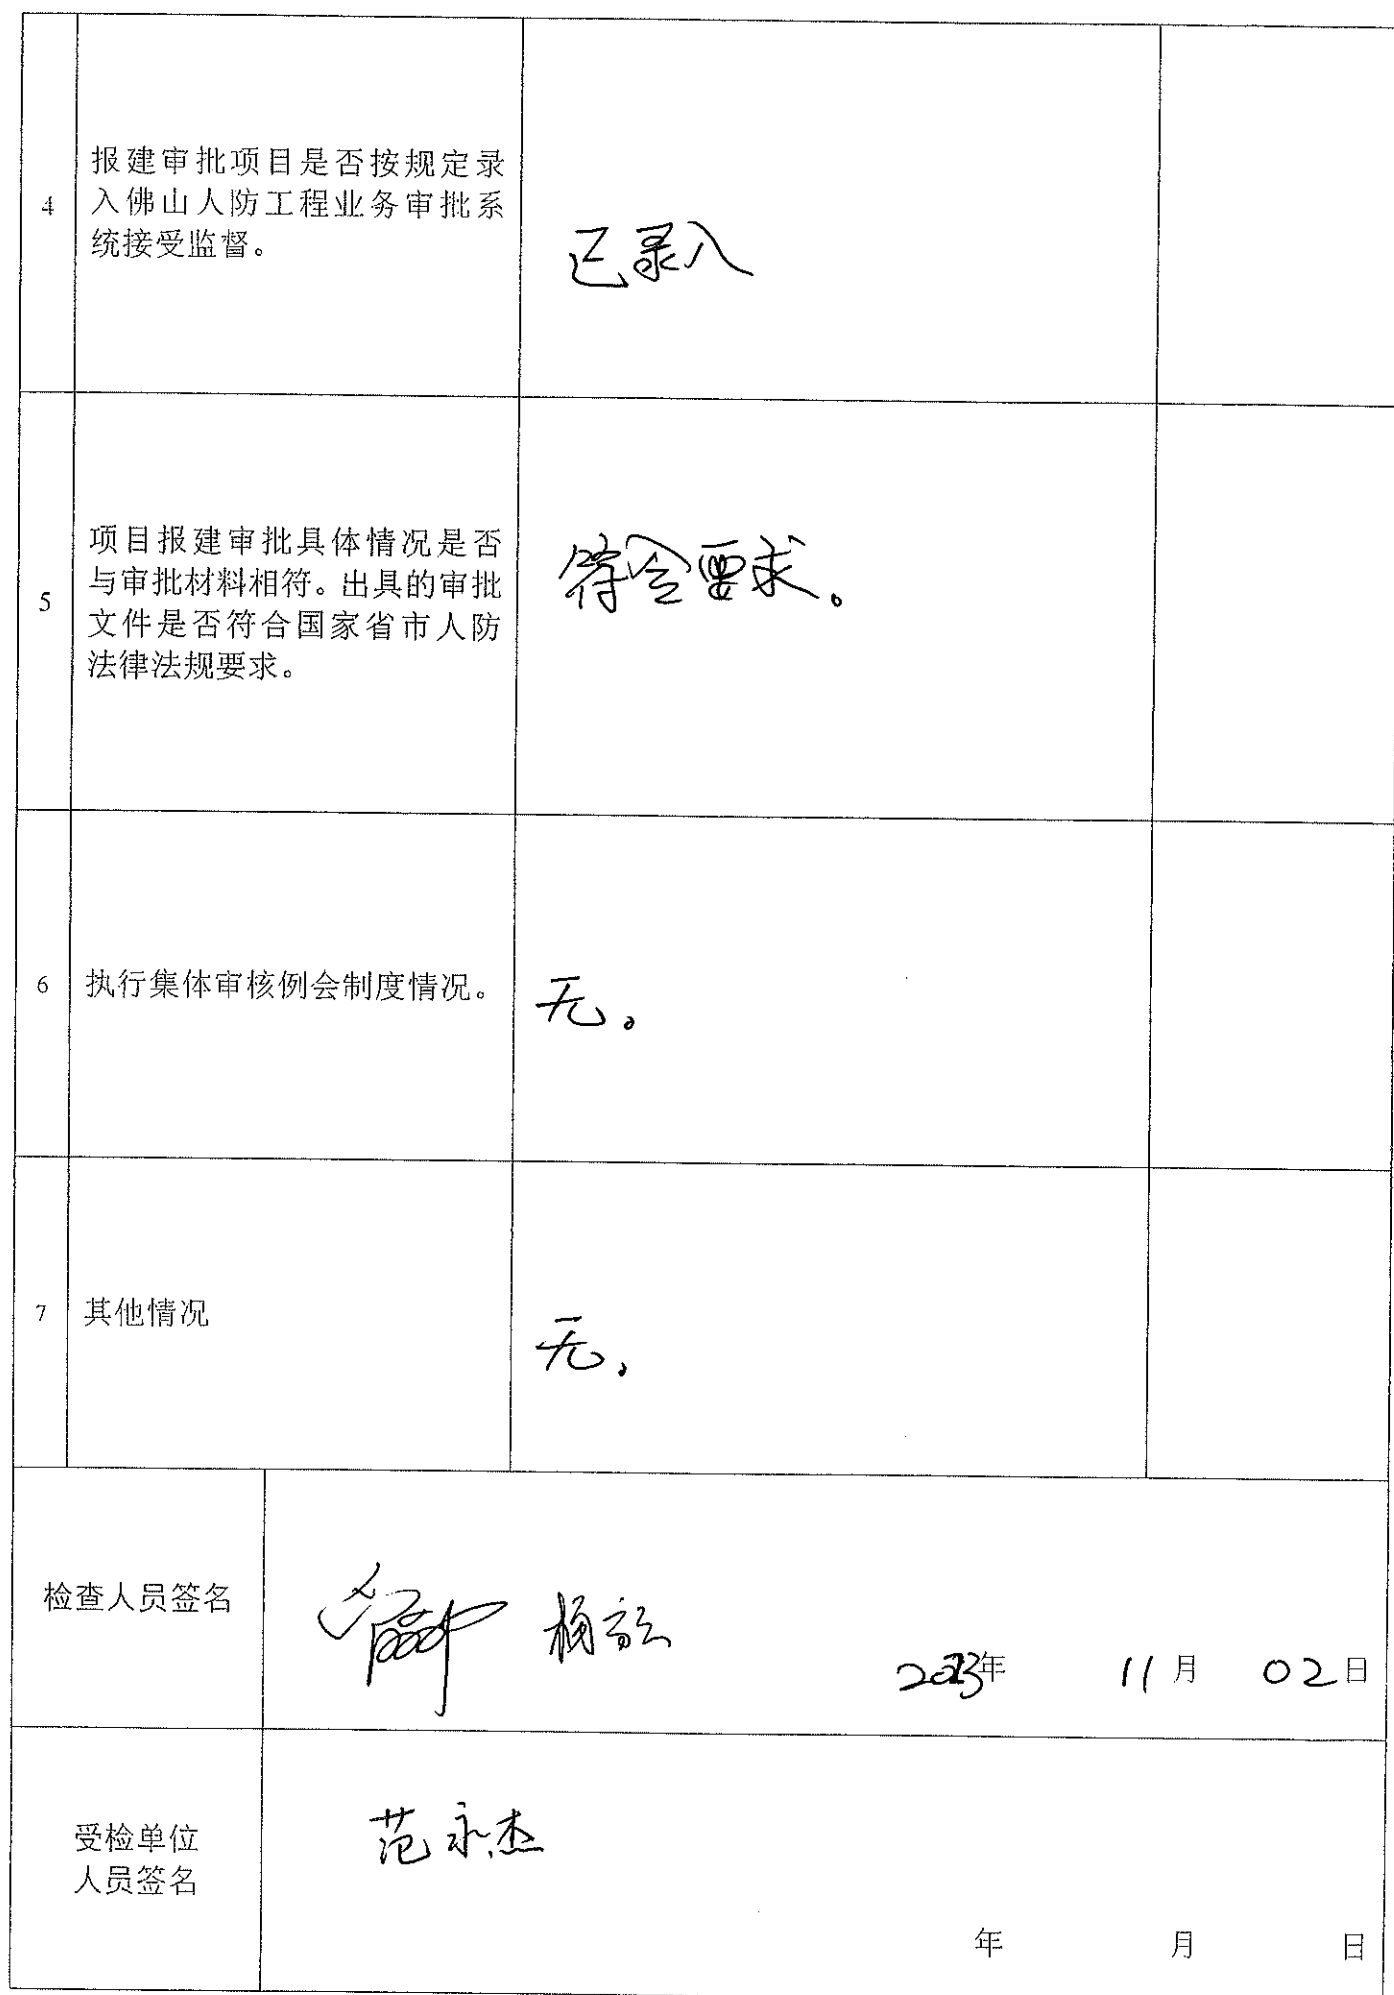 4
报建审批项目是否按规定录
入佛山人防工程业务审批系
统接受监督。
已录入
5
项目报建审批具体情况是否
与审批材料相符。出具的审批
文件是否符合国家省市人防
法律法规要求。
符合要求。
6
执行集体审核例会制度情况。
无。
7
其他情况
无。
检查人员签名
2023年 11月 02日
受检单位
人员签名
范永杰
年 月 日